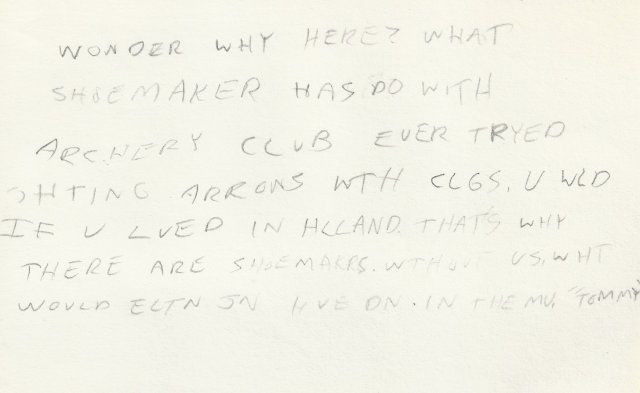 WONDER WHY HERE? WHAT
SHOEMAKER HAS DO WITH
ARCHERY CLUB EVER TRYED
OHTING ARROWS WTH CLGS. U WLD
IF U LVED IN HLLAND. THAT'S WHY
THERE ARE SHOEMAKRS. WTHOUT US, WHT
WOULD ELTN JN HVE ON. IN THE MV. "TOMMY"